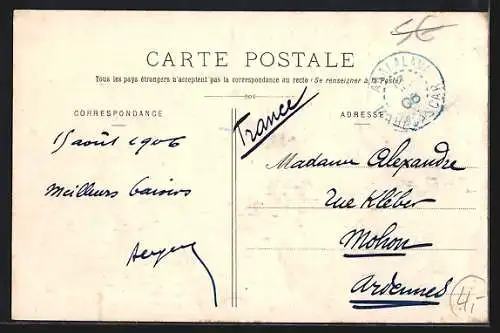 5c
CARTE POSTALE
Tous les pays étrangers n'acceptent pas la correspondance au recto (Se renseigner à la Poste)
CORRESPONDANCE
ADRESSE
France
15 août 1906
Meilleurs baisers
Madame Alexandre
rue Kléber
Mohon
Ardennes
4,-